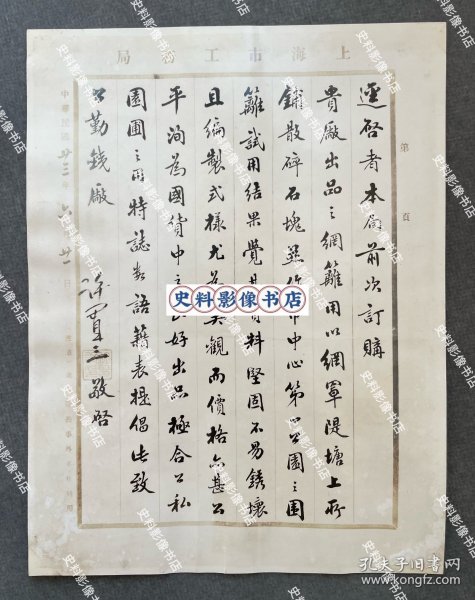 上海市工務局
第 頁
逕啓者本局前次訂購
貴廠出品之網籬用以網罩隄塘上所
鋪散碎石塊並作市中心第一公園之園
籬試用結果覺其質料堅固不易銹壞
且編製式樣尤為美觀而價格亦甚公
平洵為國貨中之良好出品極合公私
園圃之用特誌數語藉表提倡此致
公勤鐵廠
許貫三敬啓
中華民國廿三年六月廿一日
史料影像书店
孔夫子旧书网
www.kongfz.com